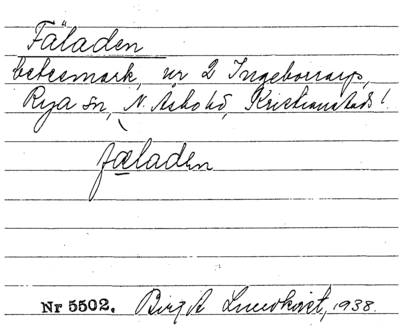 Fäladen
betesmark, nr 2 Ingeborrarp,
Rya sn, N. Åsbo hd, Kristianstads l.
fæladen
Nr 5502. Birgit Lundkvist, 1938.